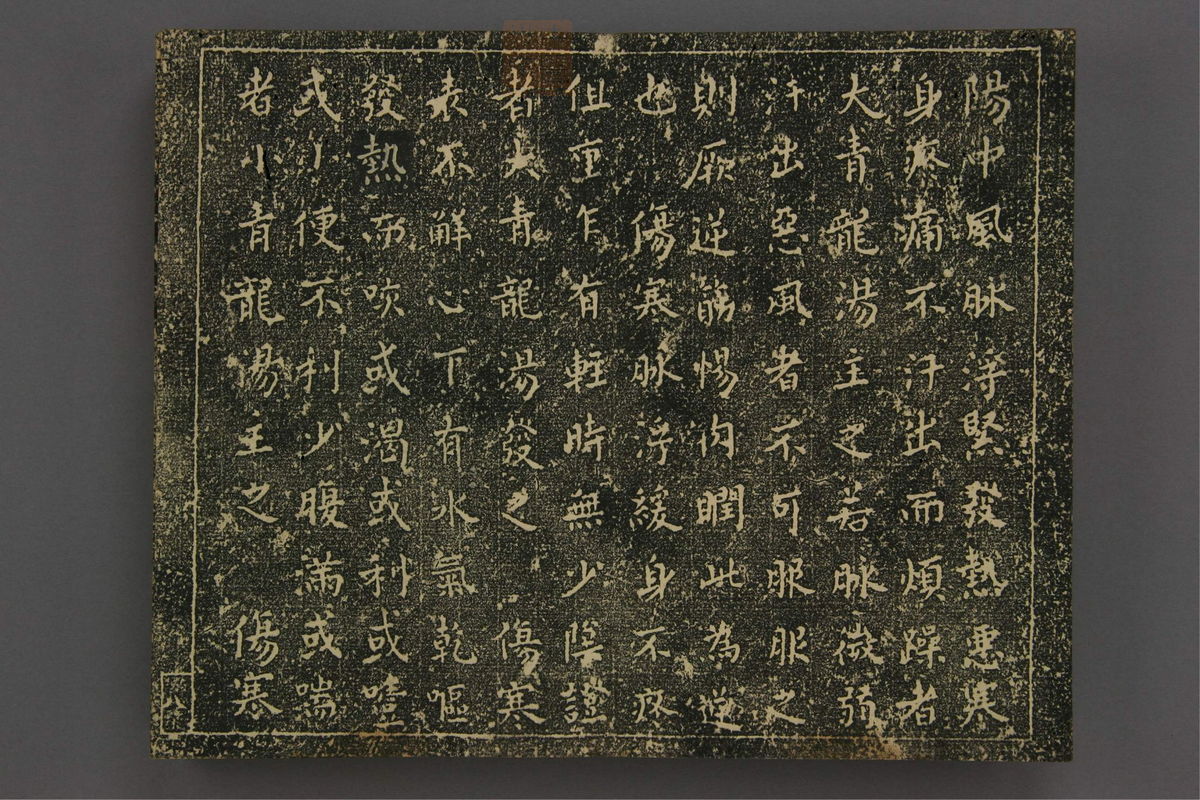 陽中風脉浮緊發熱惡寒
身疼痛不汗出而煩躁者
大青龍湯主之若脉微弱
汗出惡風者不可服服之
則厥逆筋惕肉瞤此為逆
也 傷寒脉浮緩身不疼
但重乍有輕時無少陰證
者大青龍湯發之 傷寒
表不解心下有水氣乾嘔
發熱而咳或渴或利或噎
或小便不利少腹滿或喘
者小青龍湯主之 傷寒